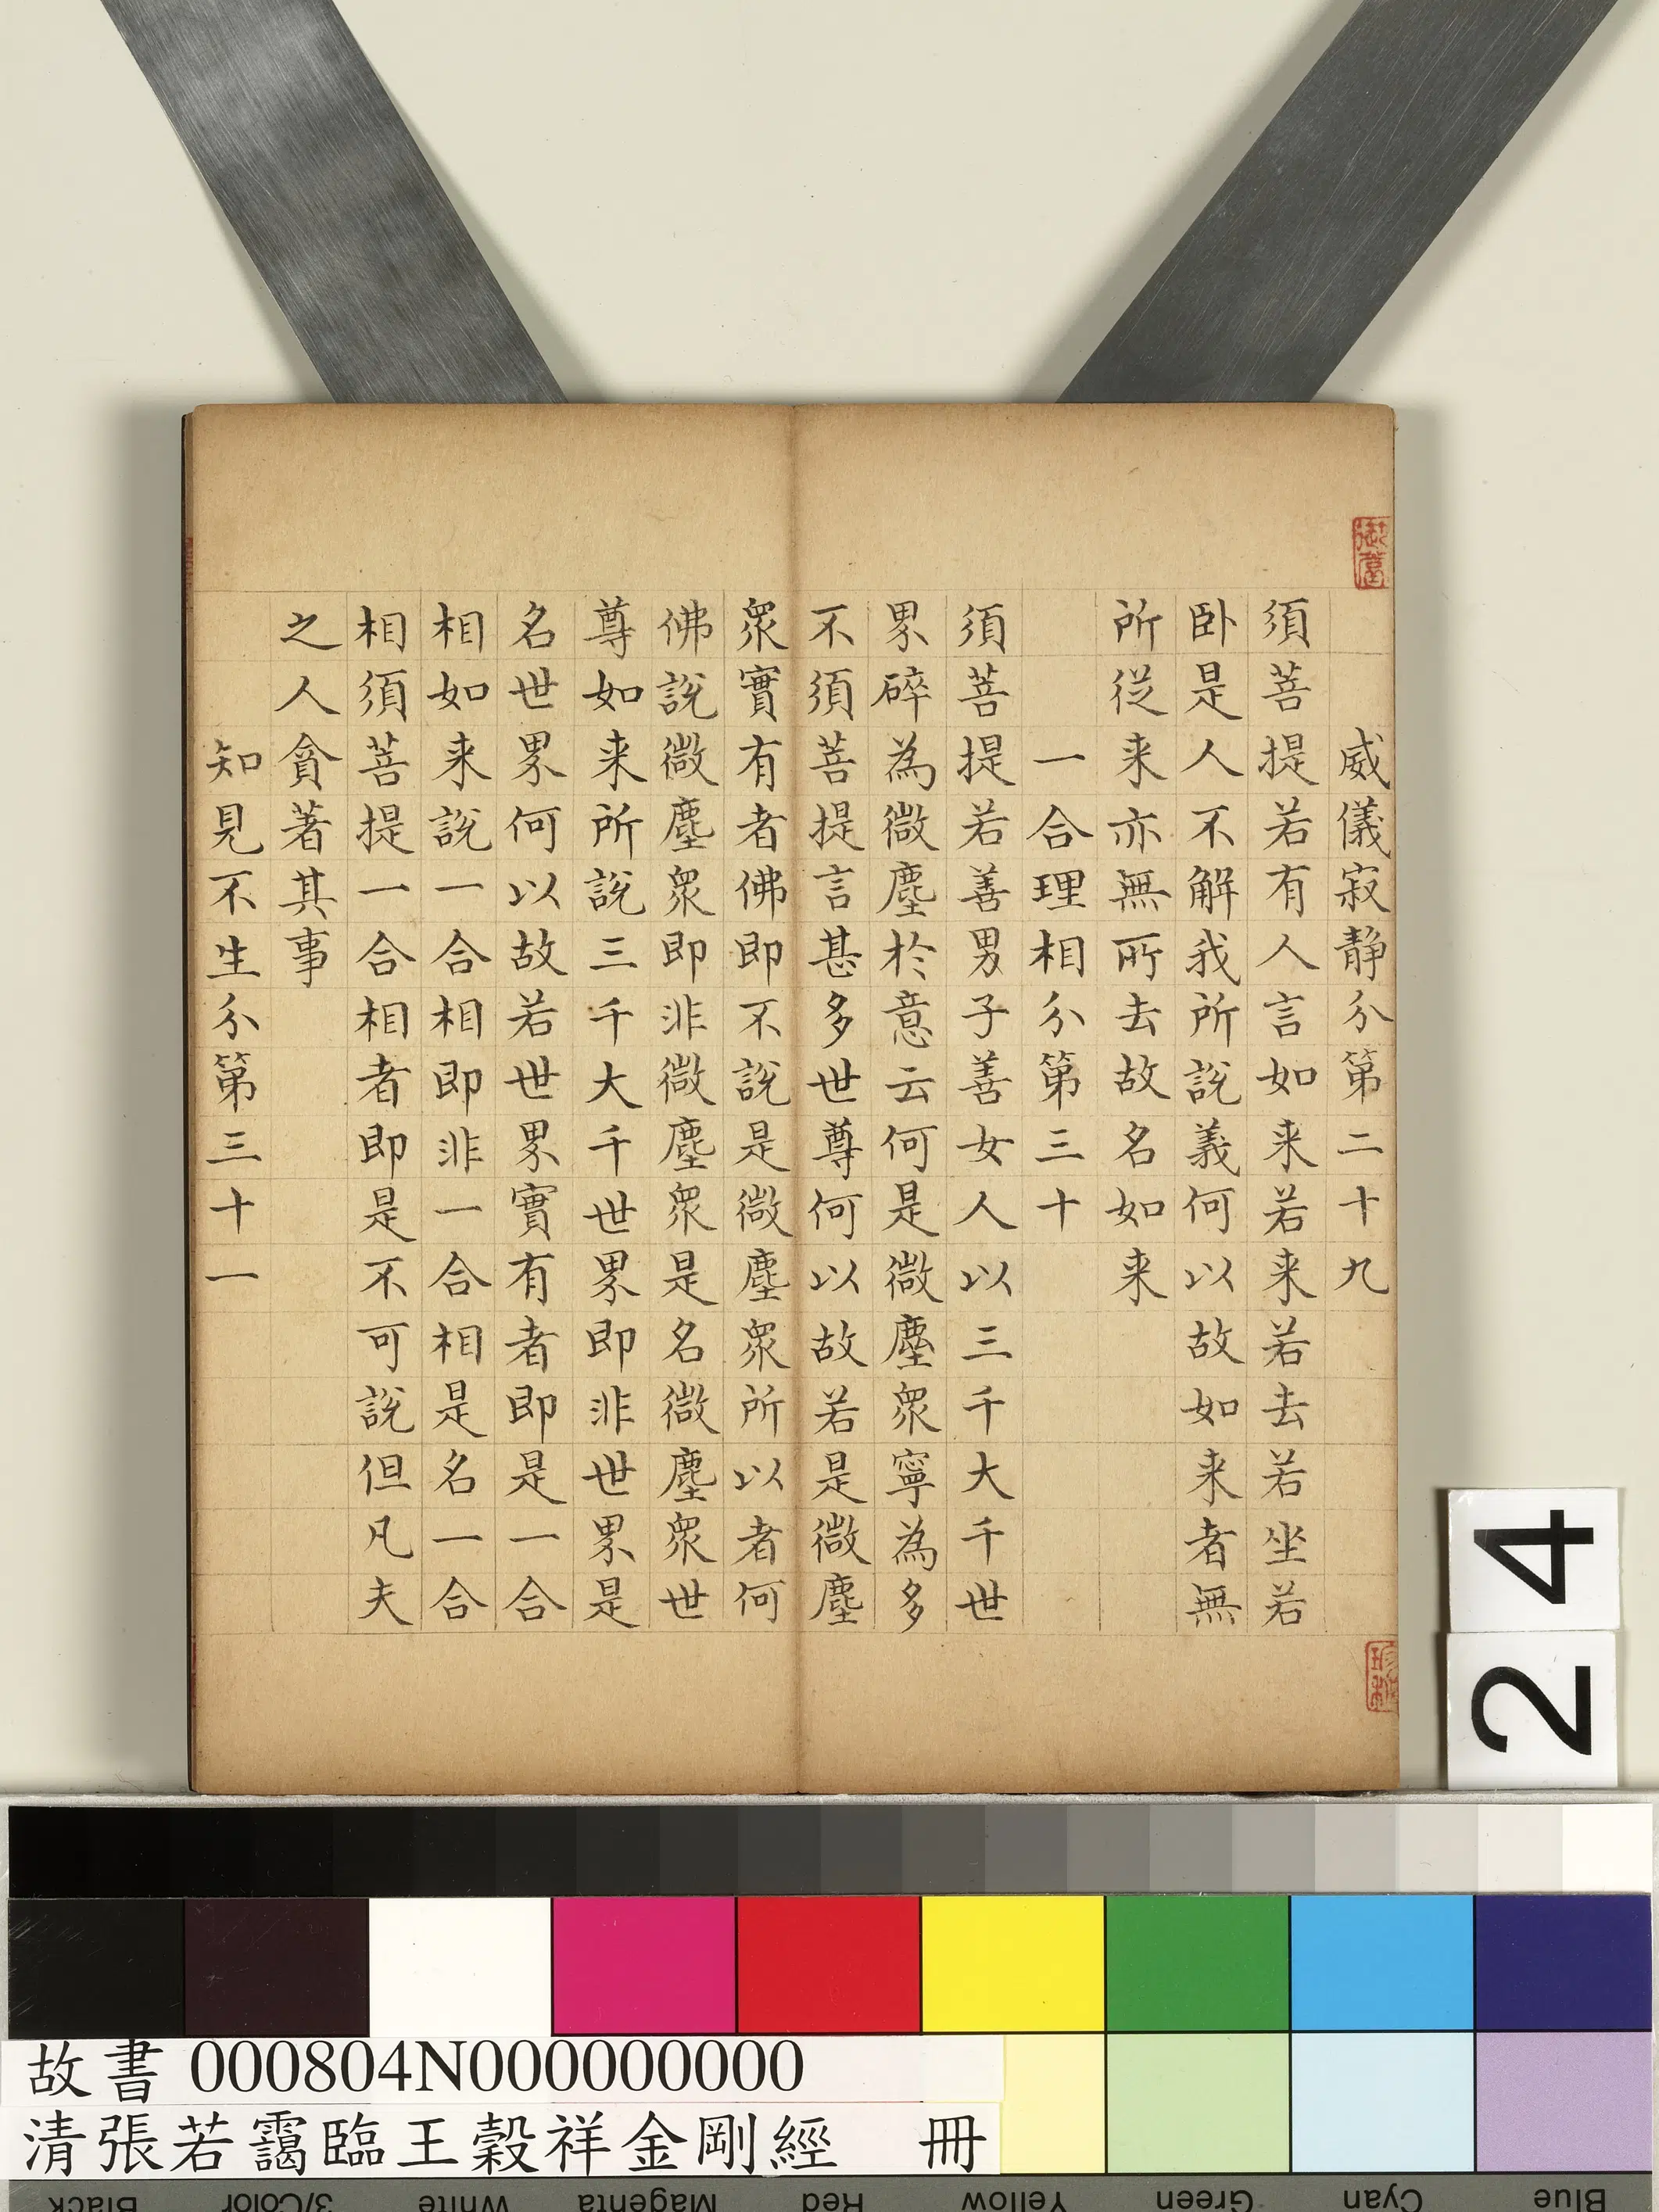 威儀寂静分第二十九
須菩提若有人言如来若来若去若坐若
卧是人不解我所說義何以故如来者無
所從来亦無所去故名如来
一合理相分第三十
須菩提若善男子善女人以三千大千世
界碎為微塵於意云何是微塵眾寧為多
不須菩提言甚多世尊何以故若是微塵
眾實有者佛即不說是微塵眾所以者何
佛說微塵眾即非微塵眾是名微塵眾世
尊如来所說三千大千世界即非世界是
名世界何以故若世界實有者即是一合
相如来說一合相即非一合相是名一合
相須菩提一合相者即是不可說但凡夫
之人貪著其事
知見不生分第三十一
24
故書 000804N000000000
清張若靄臨王穀祥金剛經 冊
Black 3/Color White Magenta Red Yellow Green Cyan Blue